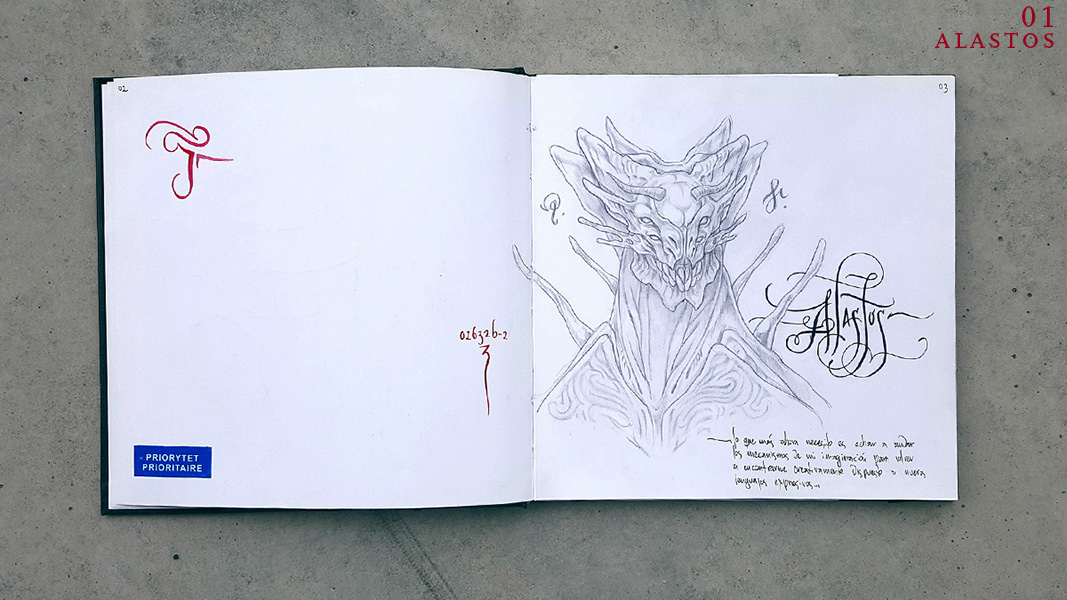 01
ALASTOS
02
03
Alastos
- PRIORYTET
PRIORITAIRE
Lo que más ahora necesito es echar a andar
los mecanismos de mi imaginación para volver
a encontrarme creativamente dispuesto a nuevos
lenguajes expresivos...